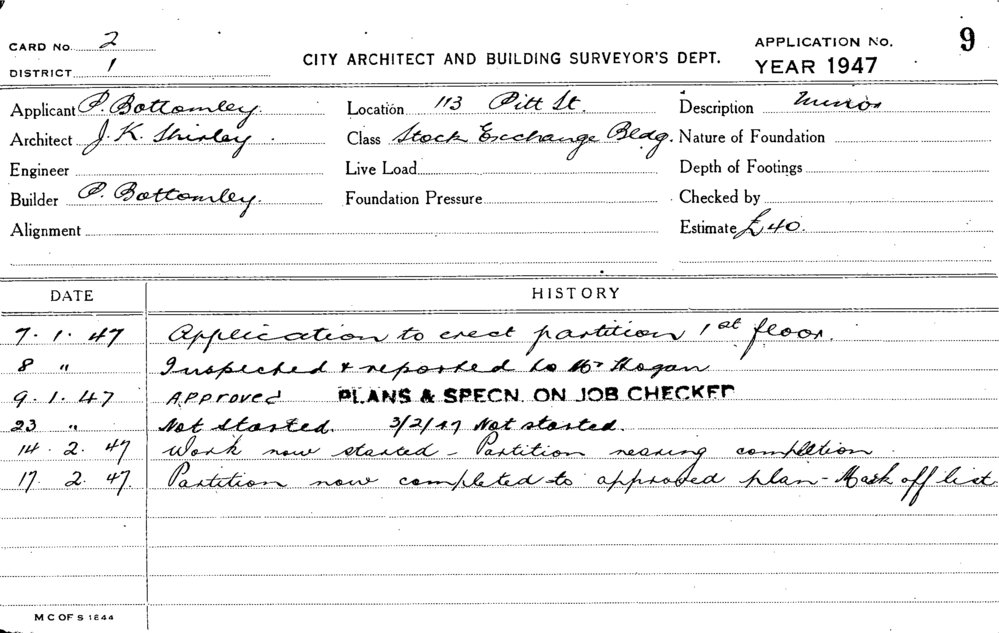 CARD No. 2
DISTRICT 1
CITY ARCHITECT AND BUILDING SURVEYOR'S DEPT.
APPLICATION No. 9
YEAR 1947
Applicant P. Bottomley. Location 113 Pitt St. Description Minor
Architect J. K. Shirley. Class Stock Exchange Bldg. Nature of Foundation
Engineer Live Load Depth of Footings
Builder P. Bottomley. Foundation Pressure Checked by
Alignment Estimate £40.
DATE HISTORY
7. 1. 47 Application to erect partition 1st floor.
8 " Inspected & reported to Mr Hogan
9. 1. 47 Approved PLANS & SPECN. ON JOB CHECKED
23 " Not Started. 3/2/47 Not started.
14. 2. 47 Work now started - Partition nearing completion.
17. 2. 47. Partition now completed to approved plan - Mark off list
M C OF S 1844